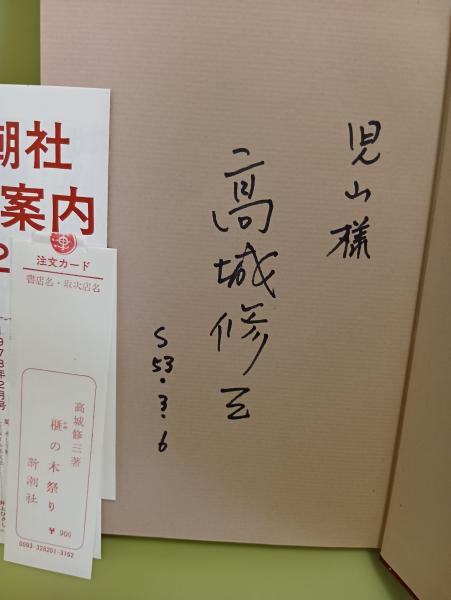 児山様
高城修三
S53.3.6
潮社
案内
注文カード
書店名・取次店名
高城修三著
榧の木祭り
かや
新潮社
¥900
0093-328201-3162
1978年2月号